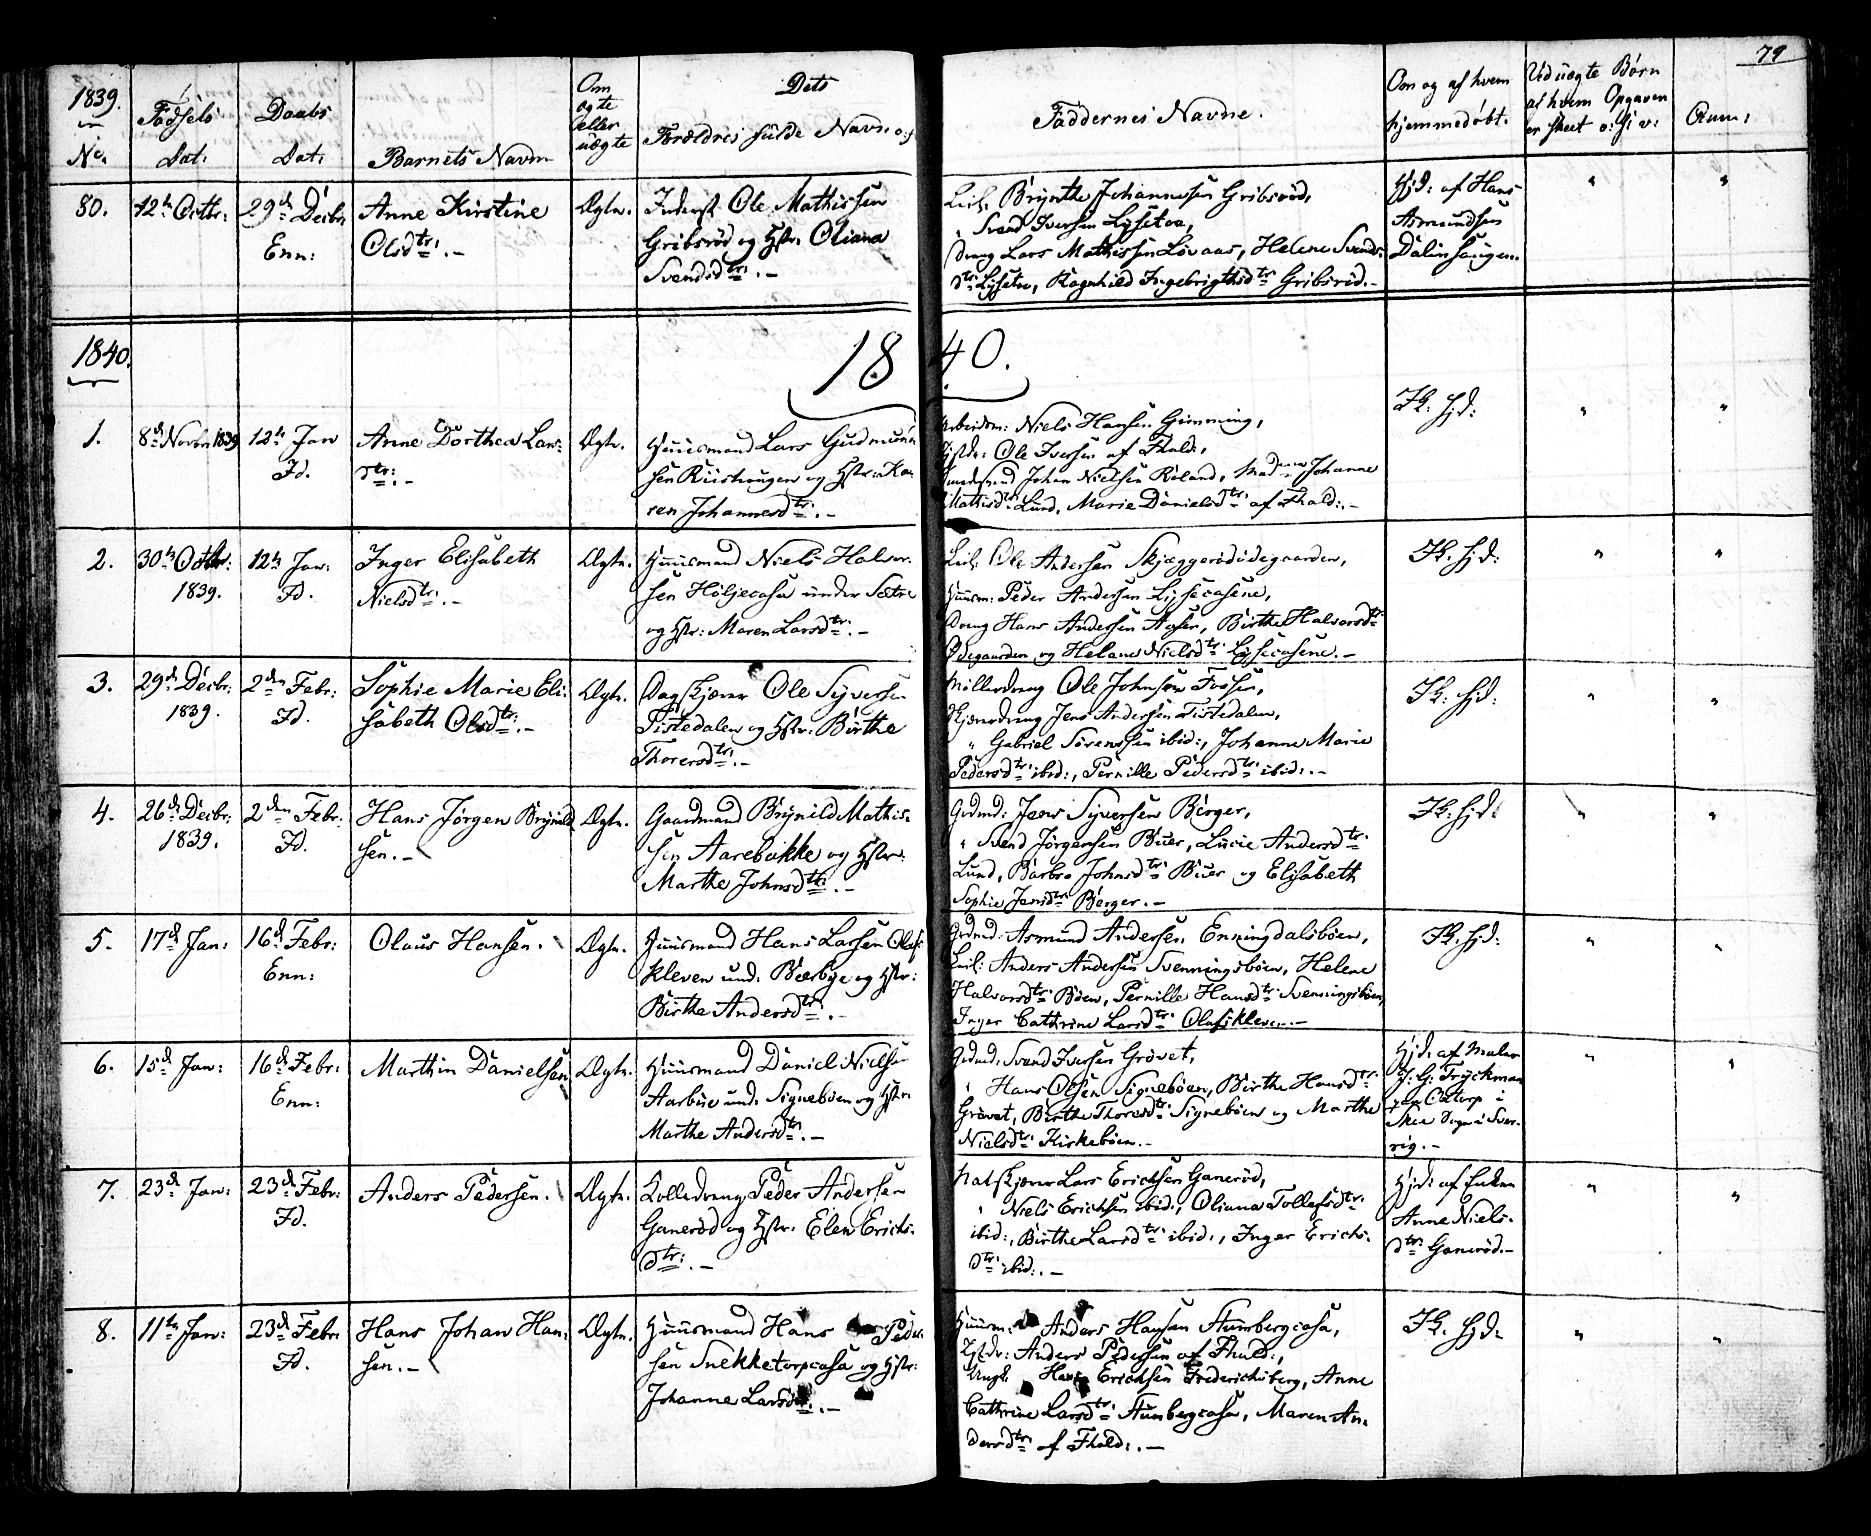 79
1839.
No.
Födsels
Dat:
Daabs
Dat:
Barnets Navn
Om
ægte
eller
uægte
Dets
Forældres fulde Navne
Faddernes Navne.
Om og af hvem
hjemmedöbt.
Ved uægte Børn
af hvem Opgaven
er skeet o: s: v:
Anm:
80.
12te Octbr:
29de Decbr
Enn:
Anne Kirstine
Olsdtr: .-
Ægte.
Inderst Ole Mathissen
Gribsröd og Hstr: Oliana
Svendsdtr: .-
Leil: Brynthe Johannesen Gribsröd,
" Svend Iversen Lysetea,
Dreng Lars Mathissen Lövaas, Helene Svends-
dtr: Lysetea, Ragnhild Ingebrigthsdtr: Gribsröd.-
Hjd: af Hans
Asmundsen
Dalen
"
"
1840.
1840.
1.
8de Novbr 1839
12te Jan
Id.
Anne Dorthea Lars-
dtr: .-
Ægte.
Huusmand Lars Gudmund-
sen Riishaugen og Hstr: Ka-
ren Johannesdtr: .-
Arbeidsm: Niels Hansen Gimming,
Ole Iversen af Fhald:,
Johan Nielsen Röland, Madme Johanne
Mathisdtr: Lund, Marie Danielsdtr: af Fhald: .-
Ik. hjd:
"
"
2.
30te Octbr:
1839.
12te Jan:
Id.
Inger Elisabeth
Nielsdtr: .-
Ægte.
Huusmand Niels Halvor-
sen Höljecasa under Sætre
og Hstr: Maren Larsdtr: .-
Leil: Ole Andersen Skjæggerödödegaarden,
Huusm: Peder Andersen Lysecasene,
Dreng Hans Andersen Aasen, Birthe Halvorsdtr:
Ödegaarden og Helene Nielsdtr: Lysecasene.-
Ik. hjd:
"
"
3.
29de Decbr:
1839.
2den Febr:
Id.
Sophie Marie Eli-
sabeth Olsdtr: .-
Ægte.
Dagskjærer Ole Syversen
Tistedalen og Hstr: Birthe
Thorersdtr: .-
Möllerdreng Ole Johnsen Fossen,
Skjærerdreng Jens Andersen Tistedalen,
" Gabriel Sörenssen ibid:, Johanne Marie
Pedersdtr: ibid:, Pernille Pedersdtr: ibid: .-
Ik. hjd:
"
"
4.
26de Decbr:
1839.
2den Febr:
Id.
Hans Jörgen Brynild-
sen.-
Ægte.
Gaardmand Brynild Mathis-
sen Aarebakke og Hstr:
Marthe Johnsdtr: .-
Grdmd: Jens Syversen Berger,
" Svend Jörgensen Buer, Lucie Andersdtr:
Lund, Barbro Johnsdtr: Buer og Elisabeth
Sophie Jensdtr: Berger.-
Ik. hjd:
"
"
5.
17de Jan:
16de Febr:
Enn:
Olaus Hansen.
Ægte.
Huusmand Hans Larsen Olafs-
kleven und: Bærbye og Hstr:
Birthe Andersdtr: .-
Grdmd: Asmund Andersen Enningdalsböen,
Leil: Anders Andersen Svenningsböen, Helene
Halvorsdtr: Böen, Pernille Hansdtr: Svenningsböen,
Inger Cathrine Larsdtr: Olafskleven.-
Ik. hjd:
"
"
6.
15de Jan:
16de Febr:
Enn:
Marthin Danielsen
Ægte.
Huusmand Daniel Nielsen
Aarbue und: Signeböen og Hstr:
Marthe Andersdtr: .-
Grdmd: Svend Iversen Grövet,
" Hans Olsen Signeböen, Birthe Hansdtr:
Grövet, Birthe Thoresdtr: Signeböen og Marthe
Nielsdtr: Kirkeböen.-
Hjd: af Maler
J: G: Tryckman
fra Östorp i
Skee Sogn i Sver-
rig.-
"
"
7.
23de Jan:
23de Febr:
Id.
Anders Pedersen.
Ægte.
Rolledreng Peder Andersen
Ganeröd og Hstr: Elen Erichs-
dtr: .-
Natskjærer Lars Erichsen Ganeröd,
" Niels Erichsen ibid:, Oliana Tollefsdtr:
ibid:, Birthe Larsdtr: ibid:, Inger Erichs-
dtr: ibid: .-
Hjd: af Enken
Anne Niels-
dtr: Ganeröd.-
"
"
8.
11te Jan:
23de Febr
Id.
Hans Johan Han-
sen.-
Ægte.
Huusmand Hans Peder-
sen Snekketorpcasa og Hstr:
Johanne Larsdtr: .-
Huusm: Anders Hansen Stumbergcasa,
Anders Pedersen af Fhald:,
Ungk: Hans Erichsen Frederichsberg, Anne
Cathrine Larsdtr: Stumbergcasa, Maren An-
dersdtr: af Fhald: .-
Ik. hjd:
"
"